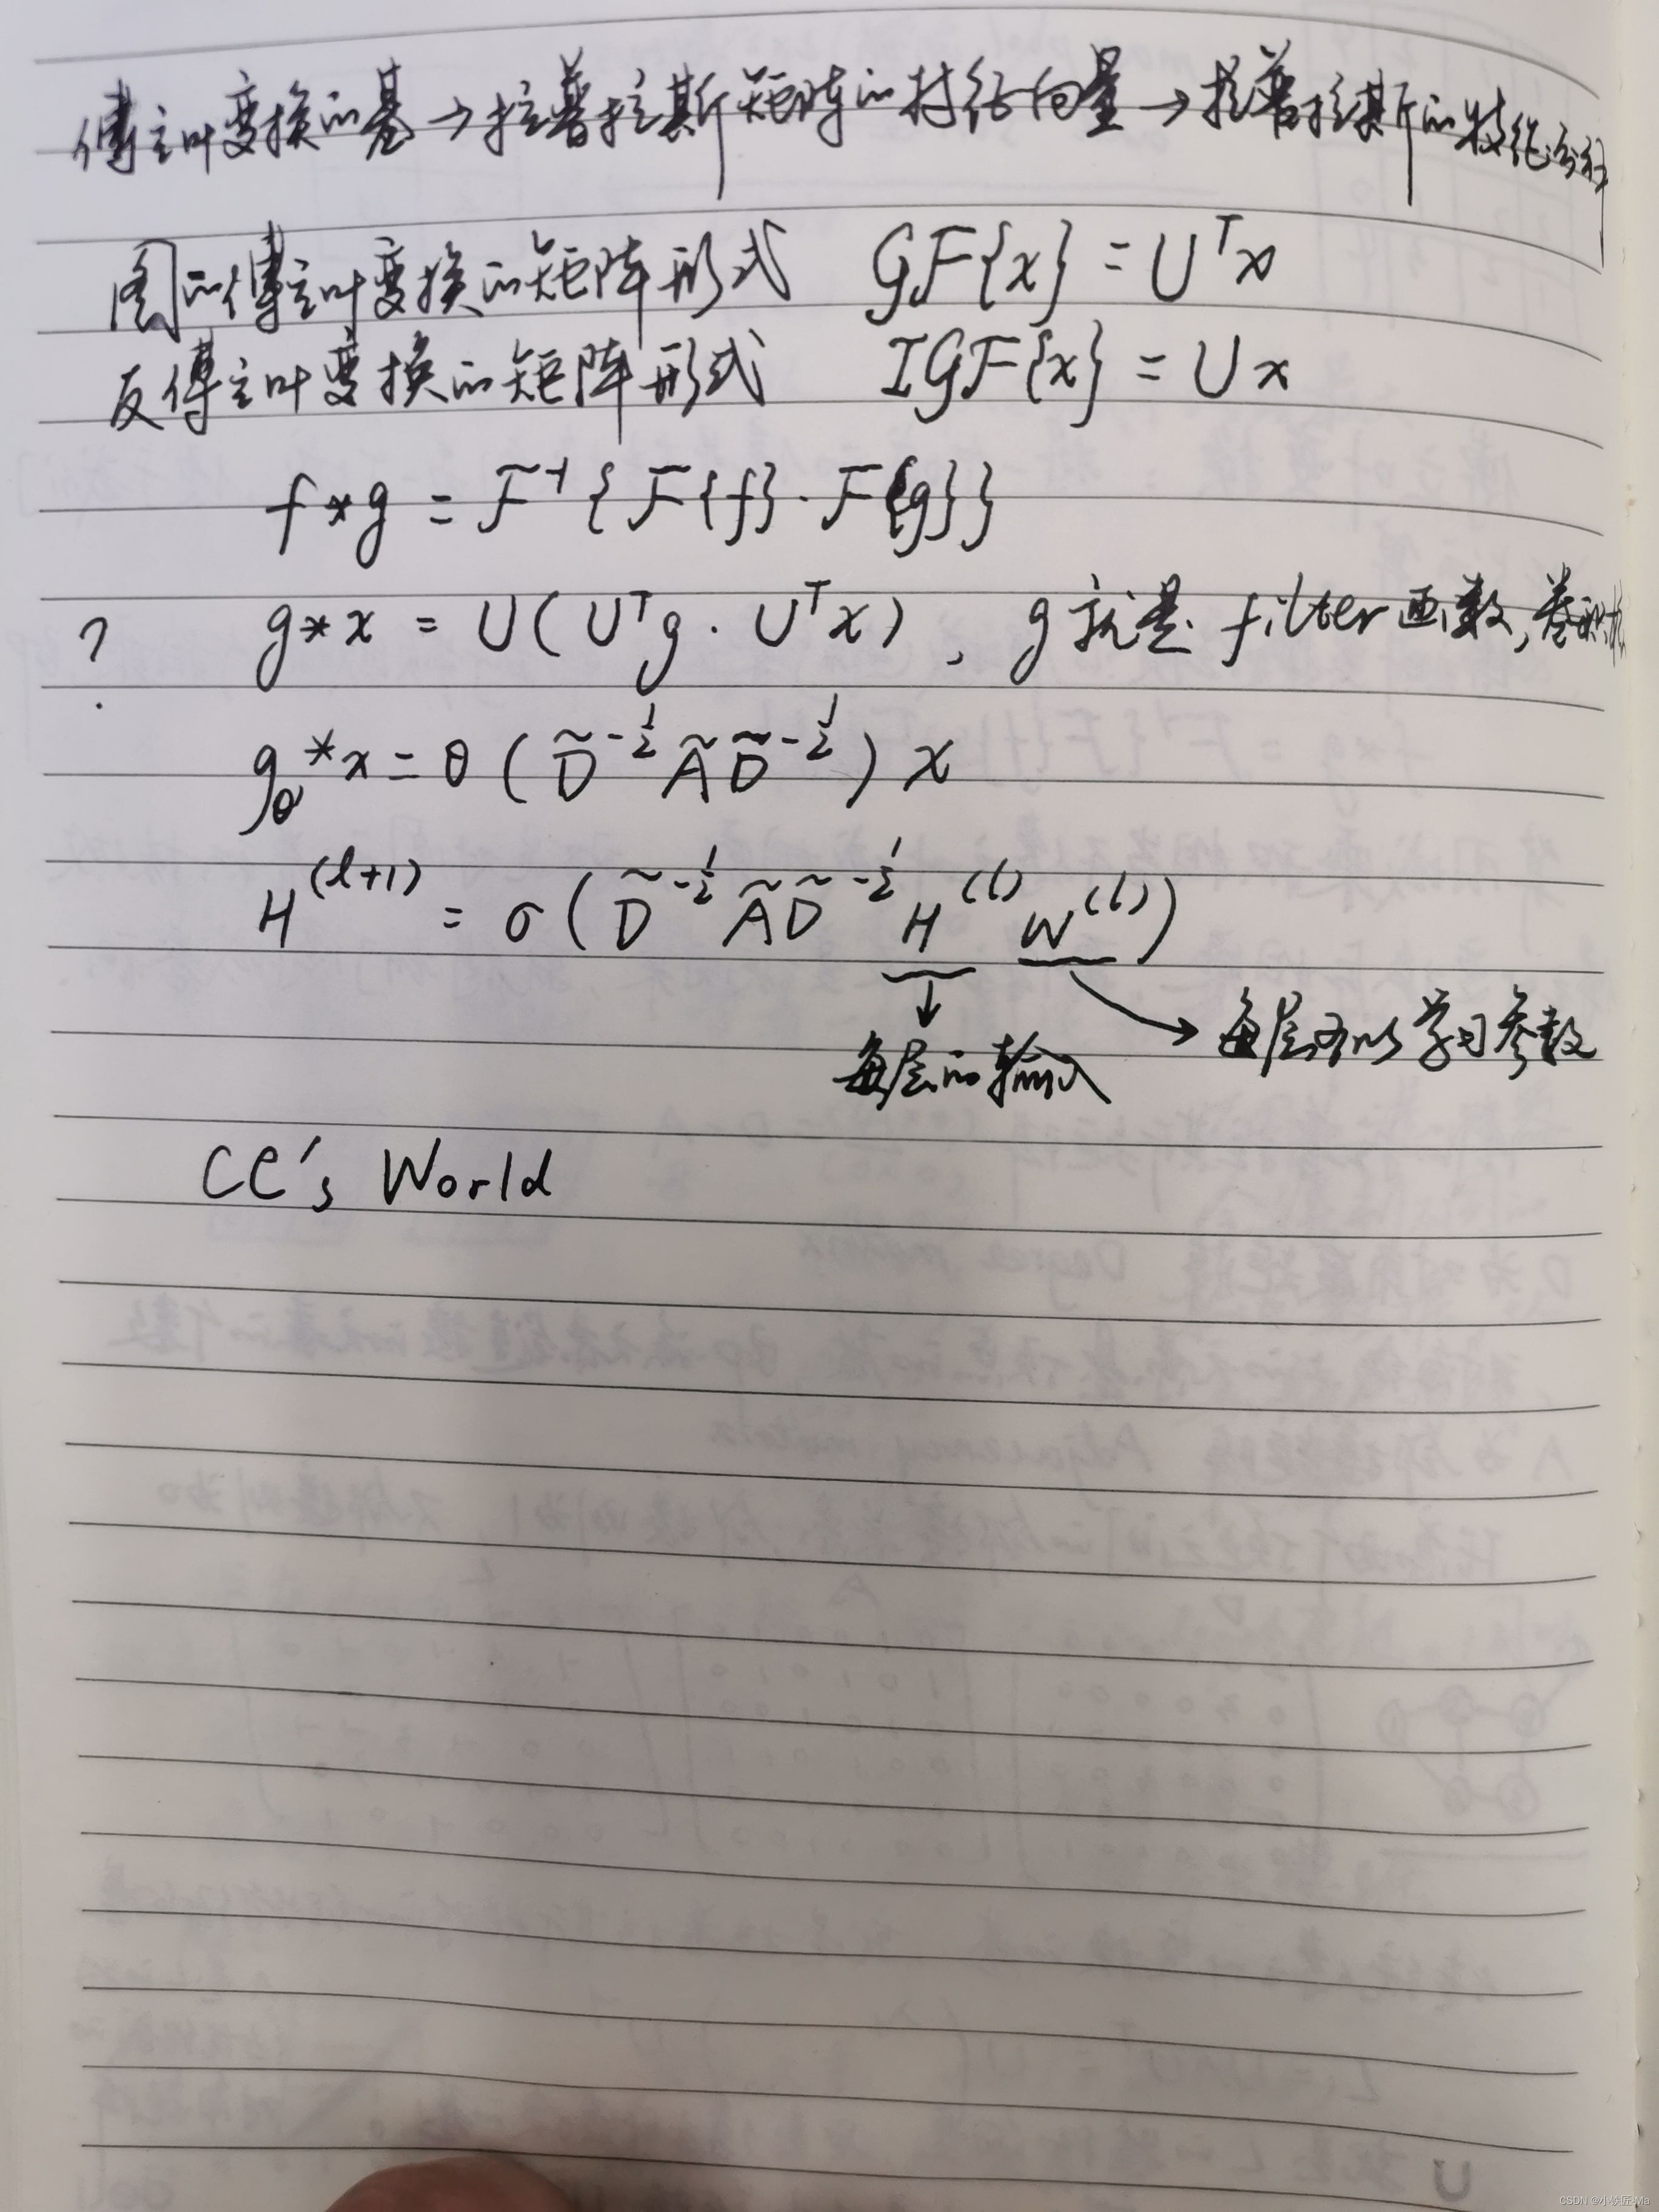 傅立叶变换的基→拉普拉斯矩阵的特征向量→拉普拉斯的特征分解
图的傅立叶变换的矩阵形式 GF{x} = Uᵀx
反傅立叶变换的矩阵形式 IGF{x} = Ux
f*g = F⁻¹{F{f}·F{g}}
? g*x = U(Uᵀg · Uᵀx), g就是 filter函数,卷积核
g_θ*x = θ(D̃^{-1/2} Ã D̃^{-1/2})x
H^{(l+1)} = σ(D̃^{-1/2} Ã D̃^{-1/2} H^{(l)} W^{(l)})
每层可以学习参数
每层的输入
CC's World
CSDN @小伙匠Ma